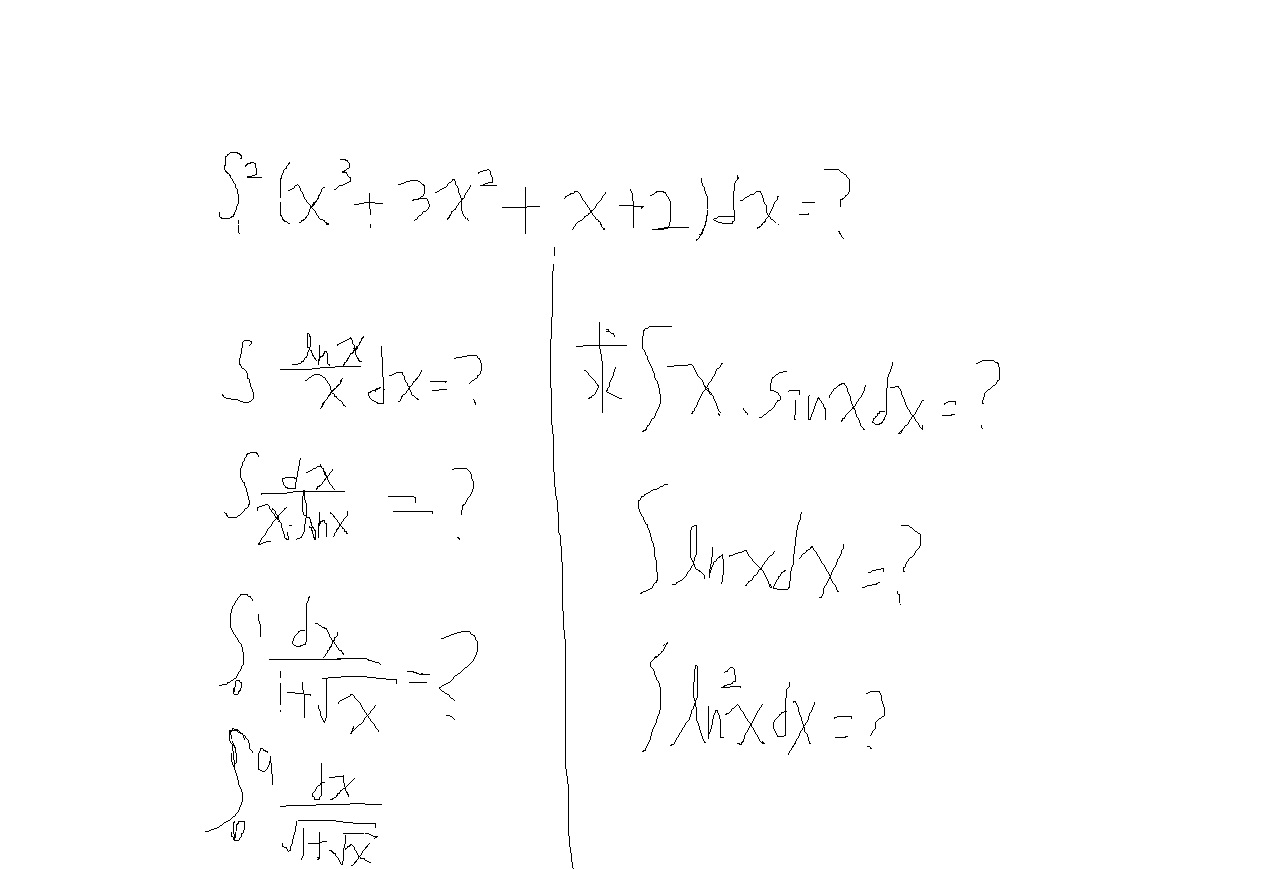 ∫₁² (x³ + 3x² + x + 2)dx = ?
∫ (ln x)/x dx = ?
∫ dx/(x·ln x) = ?
∫₀¹ dx/(1+√x) = ?
∫₀⁹ dx/√(1+√x)
求 ∫ x · sin x dx = ?
∫ ln x dx = ?
∫ ln² x dx = ?